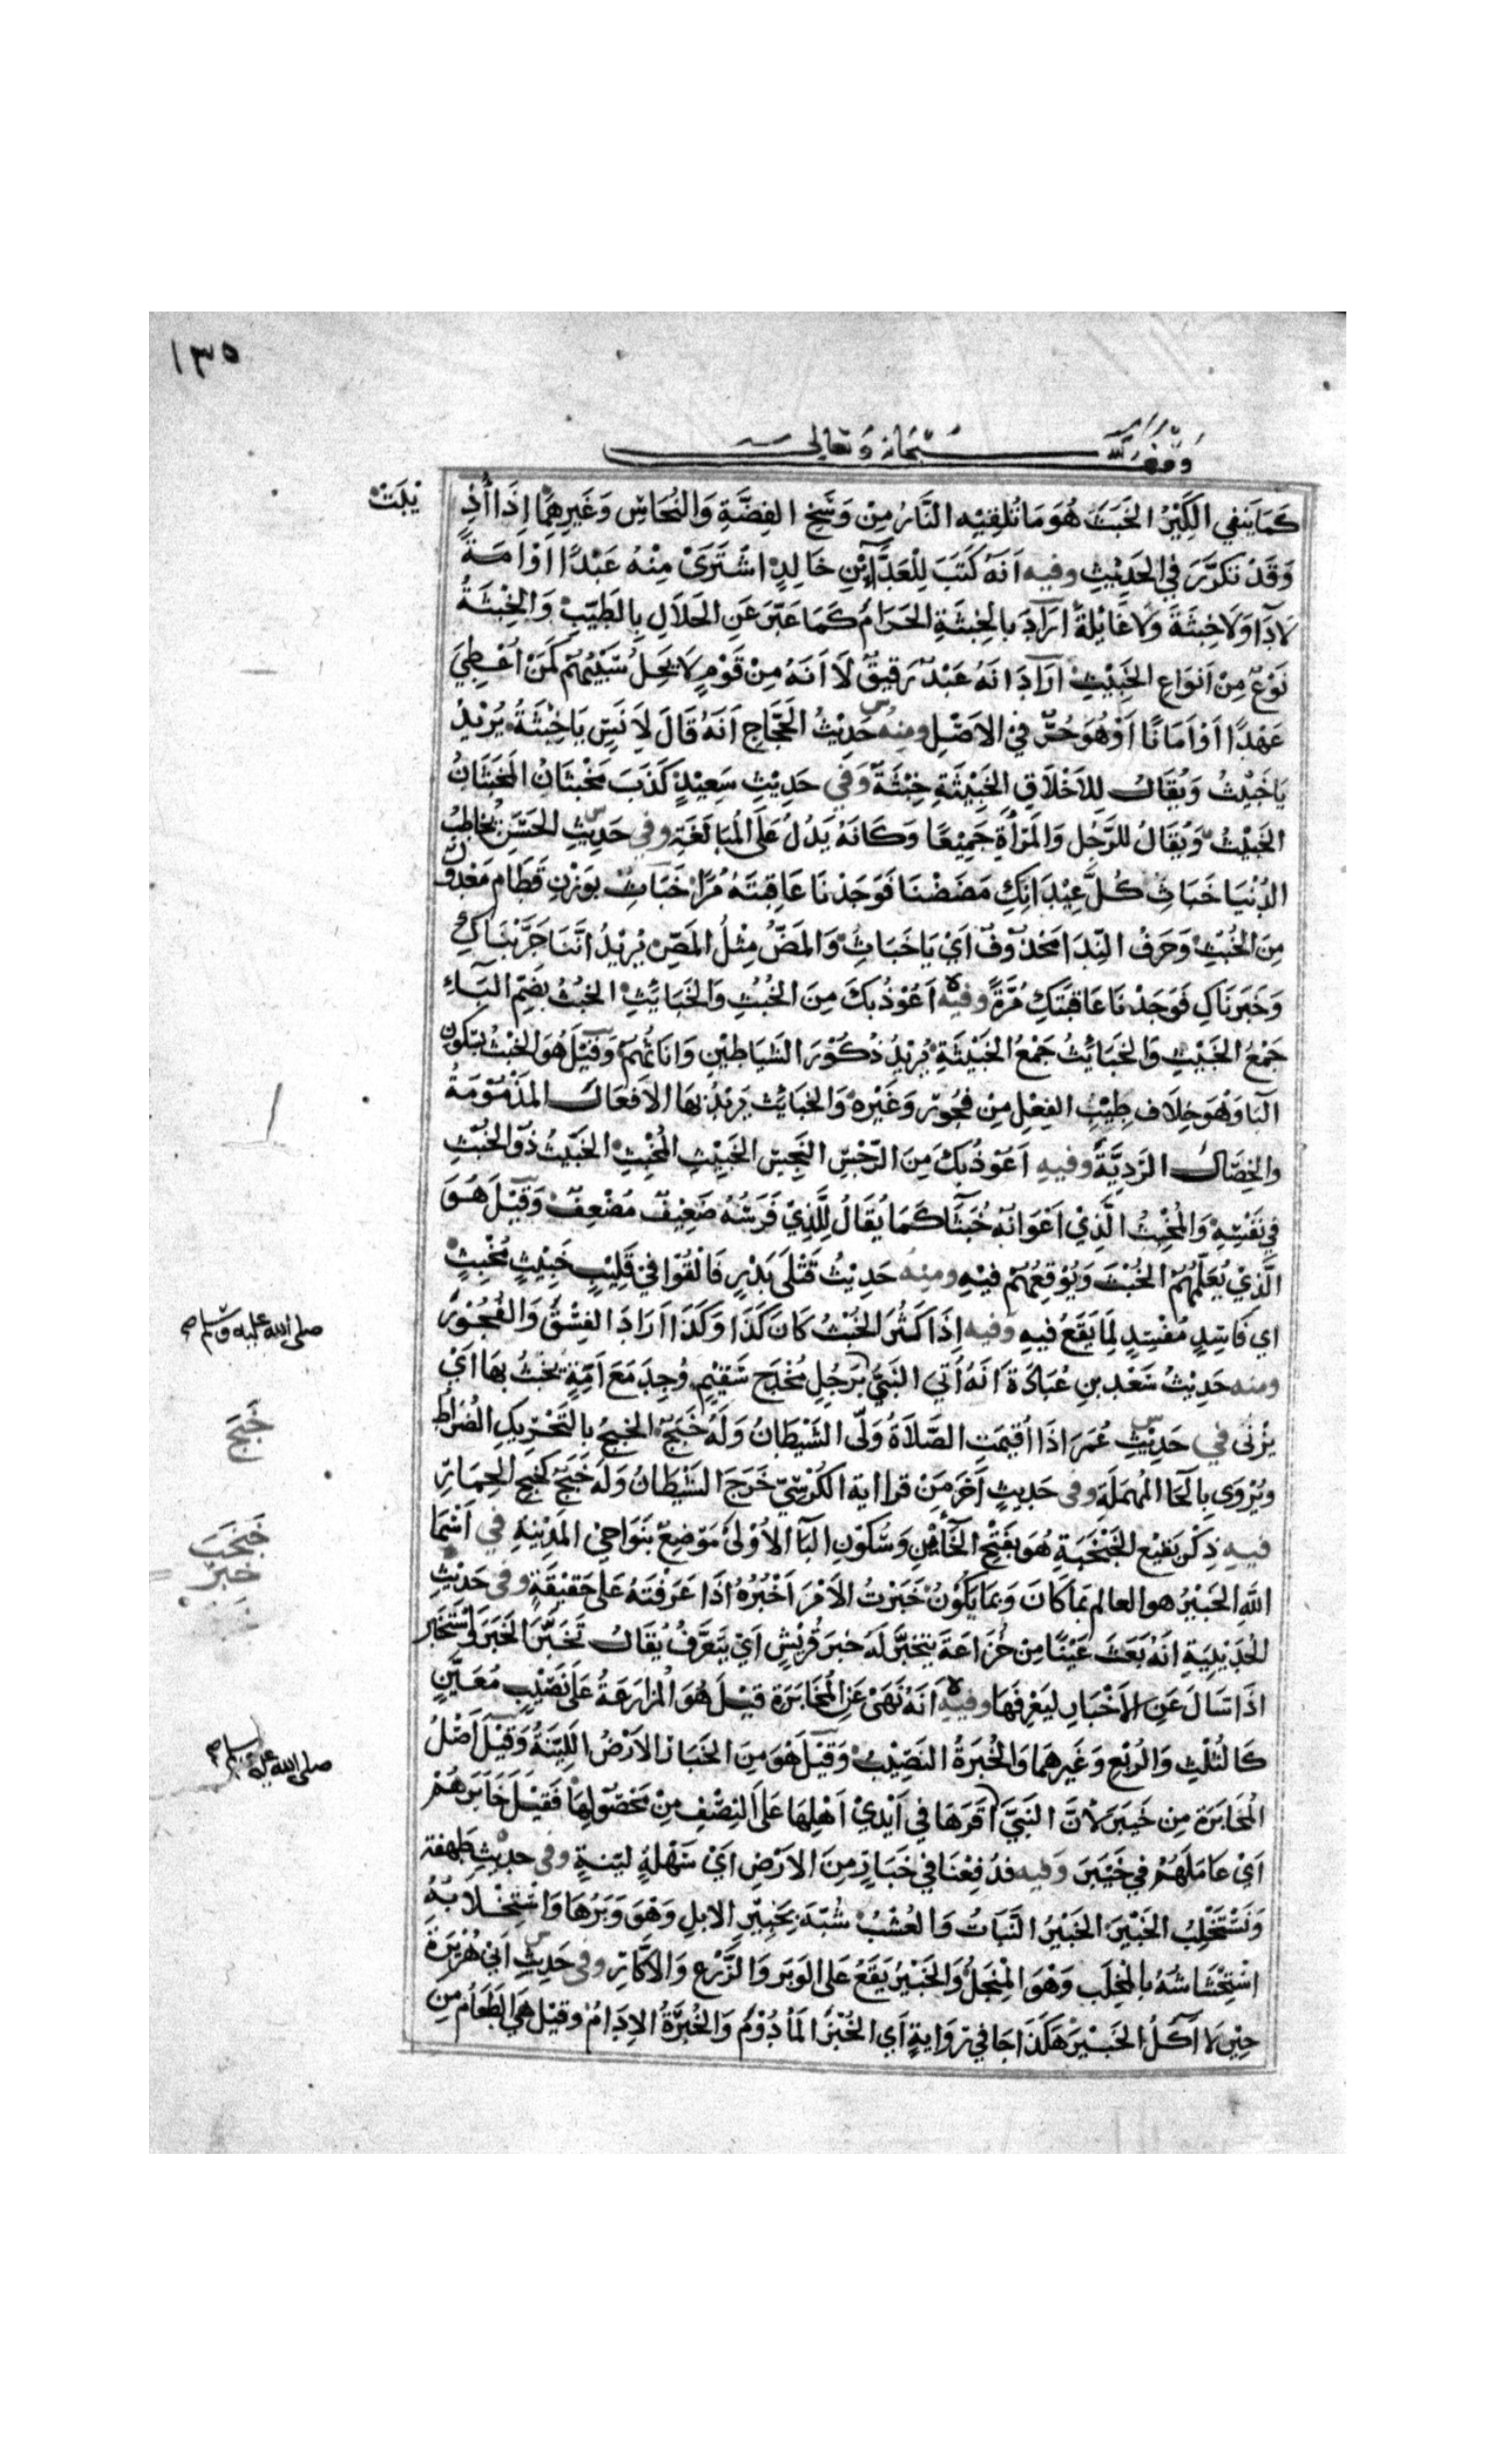 ١٣٥
وقف لله سبحانه وتعالى
كَمَا يَنفي الكِيْرُ الخَبَثَ هُوَ مَا تُلقِيْهِ النَّارُ مِنْ وَسَخِ الفِضَّةِ وَالنُّحَاسِ وَغَيرِهِمَا اِذَا اُذِ
يْبَتْ
وَقَدْ تَكَرَّرَ فِي الحَدِيْثِ وفيه اَنَّهُ كَتَبَ لِلْعَدَّاءِ بْنِ خَالِدٍ اشْتَرَىٰ مِنْهُ عَبْدًا اوْ اَمَةً
لَا دَاءَ وَلَا خِبْثَةَ وَلَا غَائِلَةَ اَرَادَ بالخِبْثَةِ الحَرَامَ كَمَا عَبَّرَ عَنِ الحَلَالِ بِالطَيِّبِ وَالخِبْثَةُ
نَوْعٌ مِنْ اَنْوَاعِ الخَبِيْثِ ارَادَ انَهُ عَبْدٌ رَقيقٌ لَا اَنَهُ مِنْ قَوْمٍ لَا يَحِلُّ سَبْيُهُمْ كَمَنْ اُعْطِيَ
عَهْدًا اَوْ اَمَانًا اَوْ هُوَ حُرٌّ فِيْ الاَصْلِ ومنه حَدِيْثُ الحَجَّاجِ اَنَهُ قَالَ لِاَنَسٍ يَا خِبْثَةُ يُرِيْدُ
يَا خَبِيْثُ وَيُقَالُ لِلاَخْلَاقِ الخَبِيْثَةِ خِبْثَةٌ وَفي حَدِيْثِ سَعِيْدٍ كَذَبَ مَخْبَثَانُ المَخْبَثَانُ
الخَبِيْثُ وَيُقَالُ لِلرَّجُلِ وَالمَرْأَةِ جَمِيْعًا وَكَانَهُ يَدُلُّ عَلَى المُبَالَغَةِ وفي حَدِيثِ الحَسَنِ يُخَاطِبُ
الدُّنْيَا خَبَاثِ كُلَّ عِيْدَانِكِ مَضَضْنَا فَوَجَدْنَا عَاقِبَتَهُ مُرًّا خَبَاثِ بِوَزْنِ قَطَامِ مَعْدُوْلٌ
مِنَ الخُبْثِ وَحَرفُ النِّدَا مَحْذُوْفٌ اَيْ يَا خَبَاثِ وَالمَضُّ مِثْلُ المَصِّ يُرِيْدُ اِنَّنَا جَرَّبْنَاكِ
وَخَبَرنَاكِ فَوَجَدْنَا عَاقِبَتَكِ مُرَّةً وفيه اَعُوْذُ بِكَ مِنَ الخُبُثِ وَالخَبَايِثِ الخُبُثُ بِضَمِّ البَاءِ
جَمْعُ الخَبِيْثِ وَالخَبَايِثُ جَمْعُ الخَبِيْثَةِ يُرِيْدُ ذُكُوْرَ الشَيَاطِيْنِ وَانَاثَهُمْ وَقِيْلَ هُوَ الخُبْثُ بِسُكُونِ
البَا وَهُوَ خِلَاف طِيْبِ الفِعْلِ مِنْ فُجُوْرٍ وَغَيْرِهِ وَالخَبَايِث يُرِيْدُ بِهَا الاَفعَالَ المَذْمُوْمَةَ
وَالخِصَالَ الرَدِيَّةَ وفيهِ اَعُوْذُ بِكَ مِنَ الرِّجْسِ النَّجِسِ الخَبِيْثِ المُخْبِثِ الخَبِيْثُ ذُو الخُبْثِ
فِي نَفْسِهِ وَالمُخْبِثُ الَّذِيْ اَعْوَانُهُ خُبَثَا كَمَا يُقَالُ لِلَّذِيْ فَرَسُهُ ضَعِيْفٌ مُضْعِفٌ وَقِيْلَ هُوَ
الَّذِيْ يُعَلِّمُهُمُ الخُبْثَ وَيُوْقِعُهُمْ فِيْهِ ومنه حَدِيْثُ قَتْلَى بَدْرٍ فَالْقُوْا فِيْ قَلِيْبٍ خَبِيْثٍ مُخْبِثٍ
اي فَاسِدٍ مُفْسِدٍ لِمَا يَقَعُ فِيهِ وفيه اِذَا كَثُرَ الخُبْثُ كَانَ كَذَا وَكَذَا اَرَادَ الفِسْقَ وَالفُجُوْرَ
ومنه حَدِيْثُ سَعْدِ بنِ عُبَادَةَ اَنَّهُ اُتِيَ النَبيُّ بِرَجُلٍ مُخْدَجٍ سَقِيْمٍ وُجِدَ مَعَ اَمَةٍ يَخْبُثُ بِهَا اَيْ
صلى الله عليه وسلم
يَزْنِي في حَدِيْثِ عُمَرَ اذَا اُقيْمَتِ الصَّلَاةُ وَلَّى الشَيْطَانُ وَلَهُ خَبَجٌ الخَبَجُ بِالتَحْرِيكِ الضُرَاطُ
خَبَج
وَيُرْوَى بِالحَا المُهْمَلَةِ وفى حَدِيثٍ آخَرَ مَنْ قرا اية الكُرْسِيِّ خَرَجَ الشَيْطَانُ وَلَهُ خَبَجٌ كَخَبَجِ الحِمَارِ
فيهِ ذِكْرُ بَقيْعِ الخَبْخَبَةِ هُوَ بِفَتْحِ الخَائَيْنِ وَسُكُوْنِ البَا الاُوْلَى مَوْضِعٌ بِنَوَاحِيْ المَدِيْنَةِ في اَسْمَا
خَبْخَبَ
خَبَرَ
اللهِ الخَبِيْرُ هو العالم بمَا كَانَ وَبمَا يَكُوْنُ خَبَرْتُ الاَمْرَ اَخْبُرُهُ اذَا عَرَفْتَهُ عَلى حَقِيْقَةٍ وفى حَدِيْثِ
الحُدَيْبِيَةِ اَنَّهُ بَعَثَ عَيْنًا مِنْ خُزَاعَةَ يَتَخَبَّرُ لَهُ خَبَرَ قُرَيْشٍ اَيْ يَتَعَرَّفُ يُقَالُ تَخَبَّرَ الخَبَرَ وَاسْتَخْبَرَ
اذَا سَالَ عَنِ الاَخْبَارِ ليَعْرِفَهَا وفيه اَنَهُ نَهَىْ عَنِ المُخَابَرَةِ قِيْلَ هُوَ المُزَارَعَةُ عَلَى نَصِيْبٍ مُعَيَّنٍ
كَالثُلْثِ وَالرُبْعِ وَغَيرِهمَا وَالخُبْرَةُ النَصِيْبُ وَقِيْلَ هُوَ مِنَ الخَبَارِ الاَرْضُ اللَيِّنَةُ وَقِيْلَ اَصْلُ
المُخَابَرَةِ مِن خَيبَرَ لاَنَّ النَبيَّ اَقَرَهَا فِي اَيْدِيْ اَهْلِهَا عَلَى النِصْفِ مِنْ مَحْصُوْلِهَا فَقِيْلَ خَابَرَهُمْ
صلى الله عليه وسلم
اَيْ عَامَلَهُمْ في خَيْبَرَ وَفيه فدُفِعْنَا في خَبَارٍ مِنَ الاَرْضِ اَيْ سَهْلَةٍ ليّنةٍ وفي حدِيْثِ طَهفة
وَنَسْتَخْلِبُ الخَبْيرَ الخَبْيرُ النَّبَاتُ وَالعُشْبُ شُبِّهَ بِخَبِيْرِ الابلِ وَهْوَ وَبَرُهَا وَاسْتِخْلَابُهُ
احْتِشَاشُهُ بالمِخْلَبِ وَهْوَ المِنْجَلُ وَالخَبْيرُ يَقَعُ عَلى الوَبَرِ وَالزَّرْعِ وَالاَكَّارِ وفى حَدِيْثِ اَبيْ هُرَيْرَةَ
حِيْنَ لا اَكُلُ الخَبْيرَ هَكَذَا جَا في رِوَايَةٍ اَي الخُبْزَ المَأدُوْمَ وَالخُبْرَةُ الاِدَامُ وقِيْل هِيَ الطَعَامُ مِن